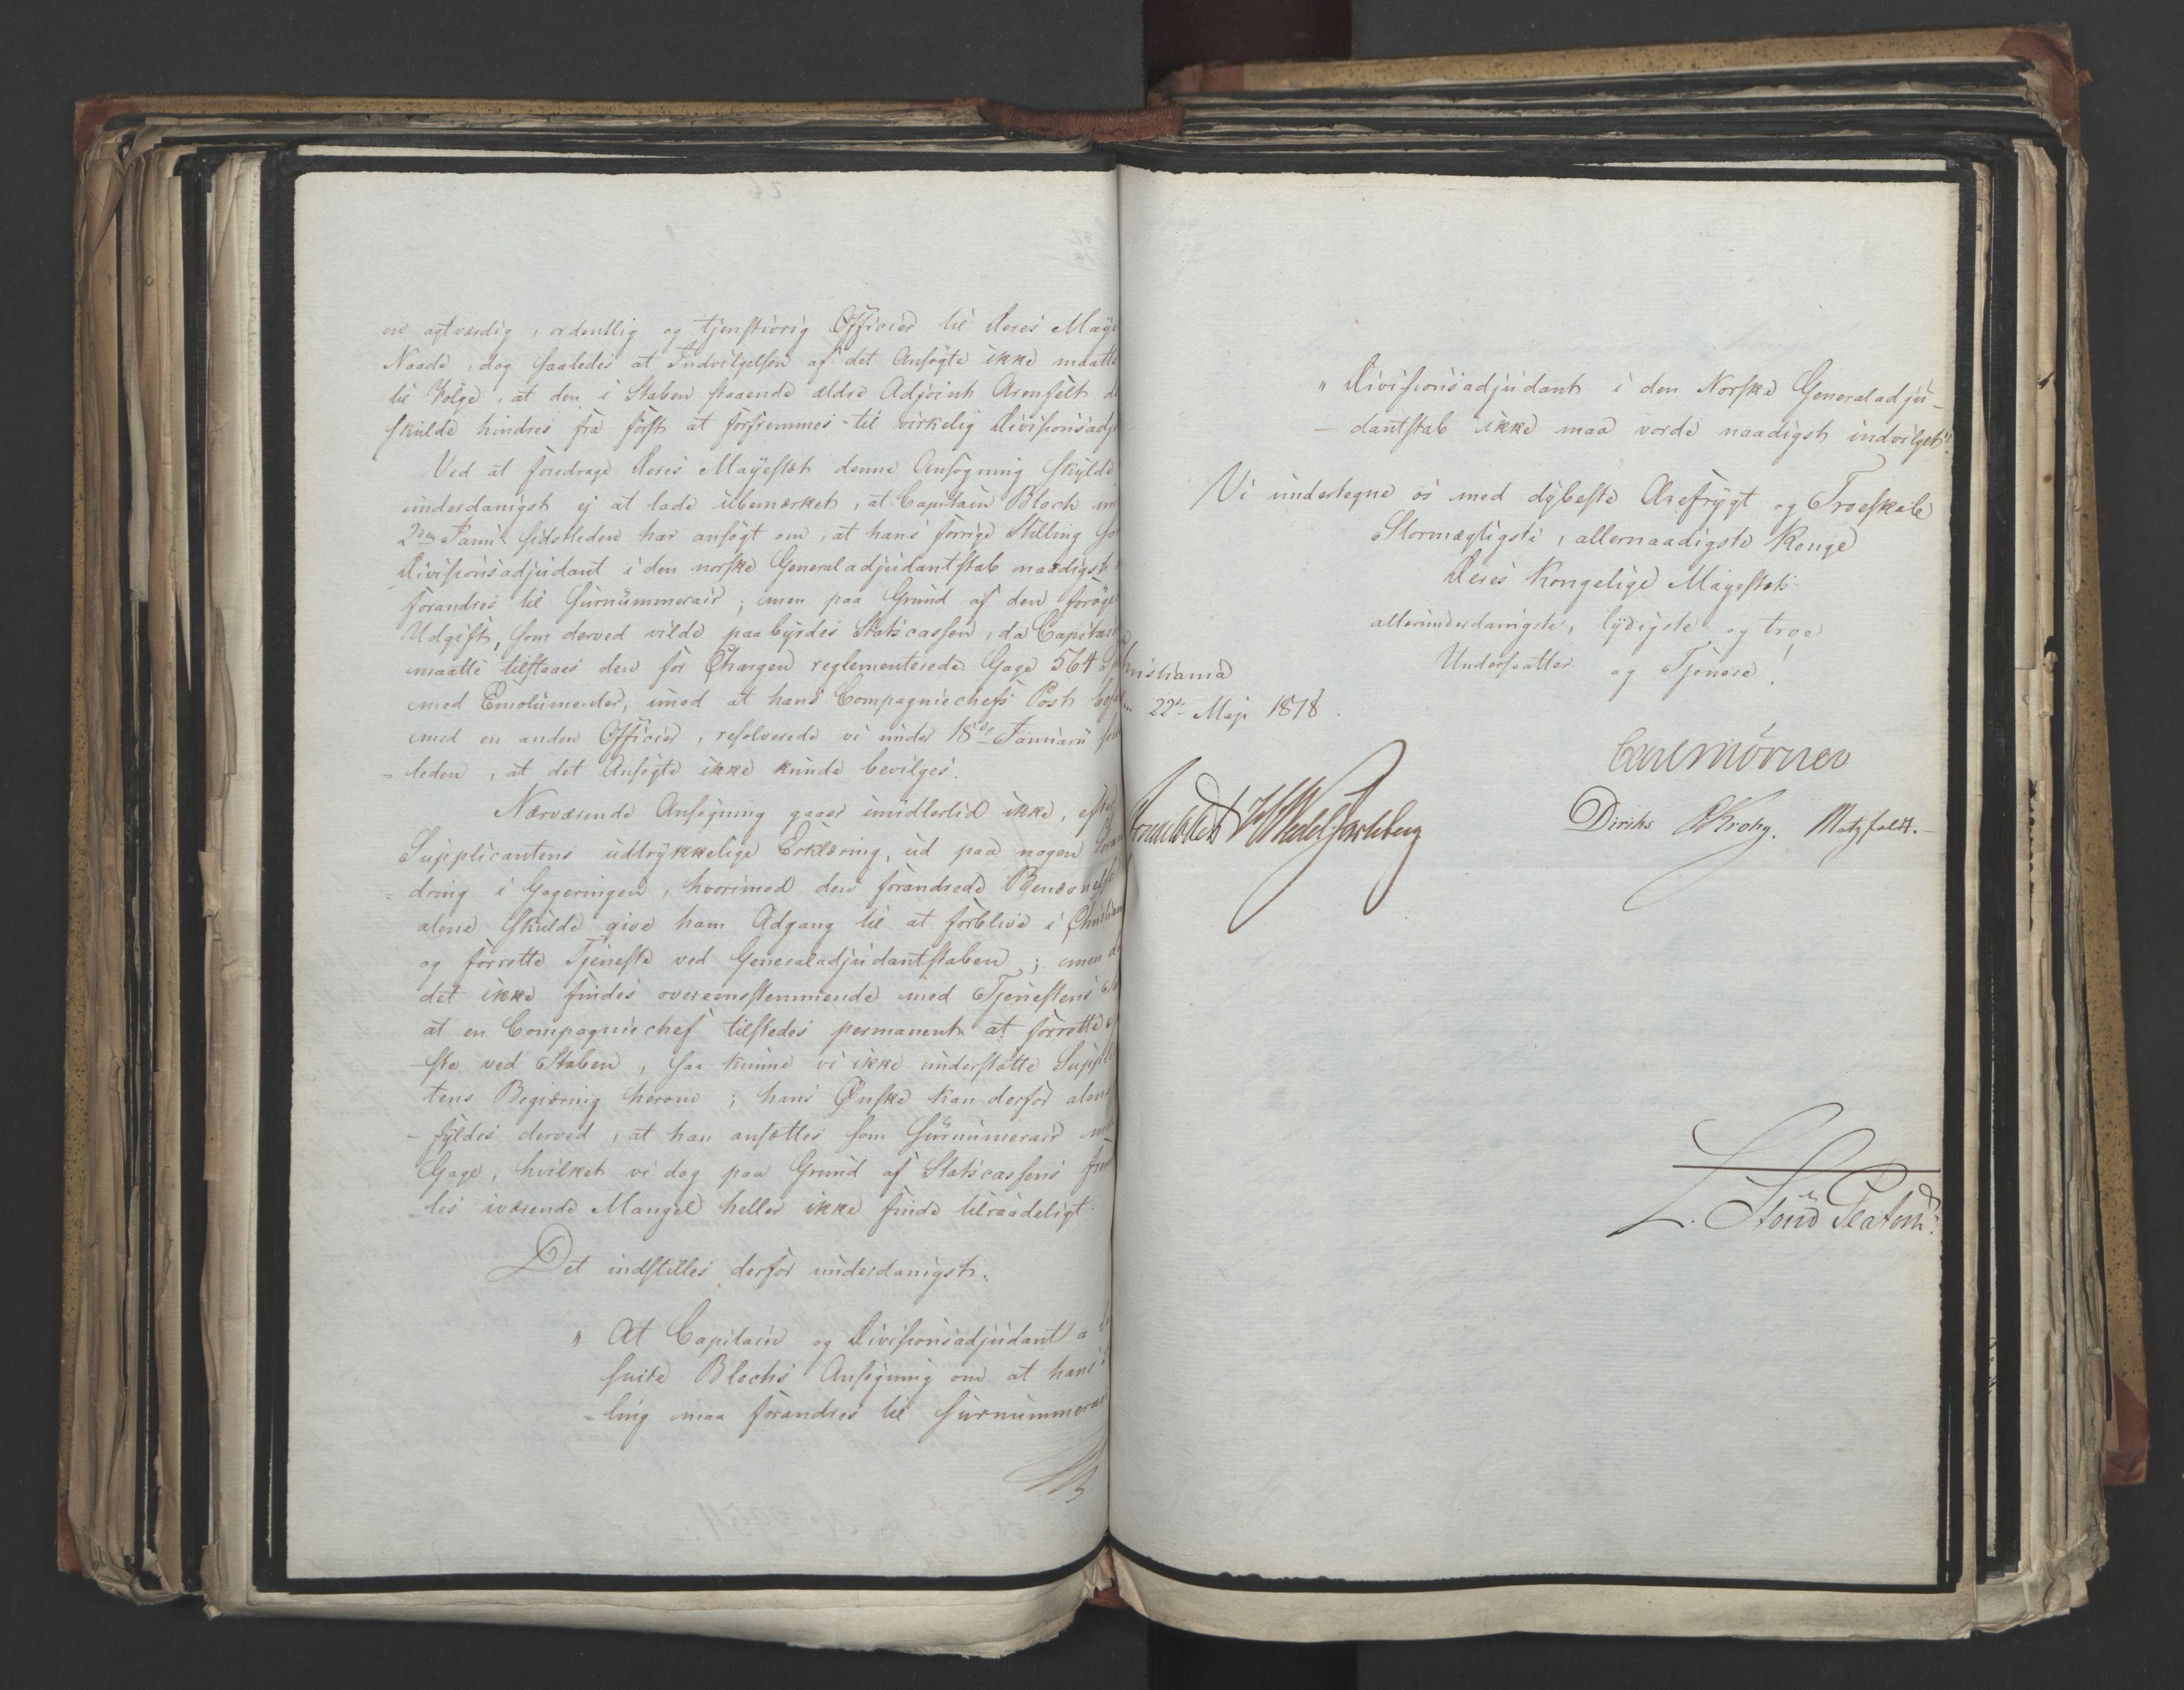 en agtværdig, ordentlig og tjenstivrig Officier til Deres Maye
Naade, dog saaledes at Indvilgelsen af det Ansøgte ikke maatte
til Følge, at den i Staben staaende ældre Adjoint Arenfelt
skulde hindres fra først at forfremmes til virkelig Divisionsadj
Ved at foredrage Deres Mayestæt denne Ansøgning skulde
underdanigst ej at lade ubemærket, at Capitain Bloch
2den Janu: sidstleden har ansøgt om, at hans forrige Stilling so
Divisionsadjudant i den norske Generaladjudantstab naadigst
forandres til surnummerair; men paa Grund af den forøge
Udgift, som derved vilde paabyrdes Statscassen, da Capitain
maatte tilstaaes den for Chargen reglementerede Gage 564 Sp
med Emolumenter, imod at hans Compagniechefs Post besæ
med en anden Officier, resolverede vi under 18de Januarii sidst
-leden, at det Ansøgte ikke kunde bevilges.
Nærværende Ansøgning gaaer imidlertid ikke, efter
Supplicantens udtrykkelige Erklæring, ud paa nogen Foran
-dring i Gageringen, hvorimod den forandrede Benævnelse
alene skulde give ham Adgang til at forblive i Christian
og forrette Tjeneste ved Generaladjudantstaben; men da
det ikke findes overeensstemmende med Tjenestens
at en Compagniechef tilstedes permanent at forrette
-ste ved Staben, saa kunne vi ikke understøtte Suppli
tens Begiæring herom; hans Ønske kan derfor alene
-fyldes derved, at han ansættes som surnumerair med
Gage, hvilket vi dog paa Grund af Statscassens frem
-les værende Mangel heller ikke finde tilraadeligt.
Det indstilles derfor underdanigst.
" At Capitain og Divisionsadjudant a la
suite Blochs Ansøgning om at hans
-ling maa forandres til surnummerair
" Divisionsadjudant i den Norske Generaladju-
-dantstab ikke maa vorde naadigst indvilget".
Vi undertegne os med dybeste Ærefrygt og Troeskab
Stormægtigste, allernaadigste Konge
Deres Kongelige Mayestæts
allerunderdanigste, lydigste og troe
Undersaatter og Tjenere!
hristiania
22de Maji 1818.
Carl Mörner
Wedel Jarlsberg
Diriks CKrohg. Motzfeldt.
L. Stoud Platou